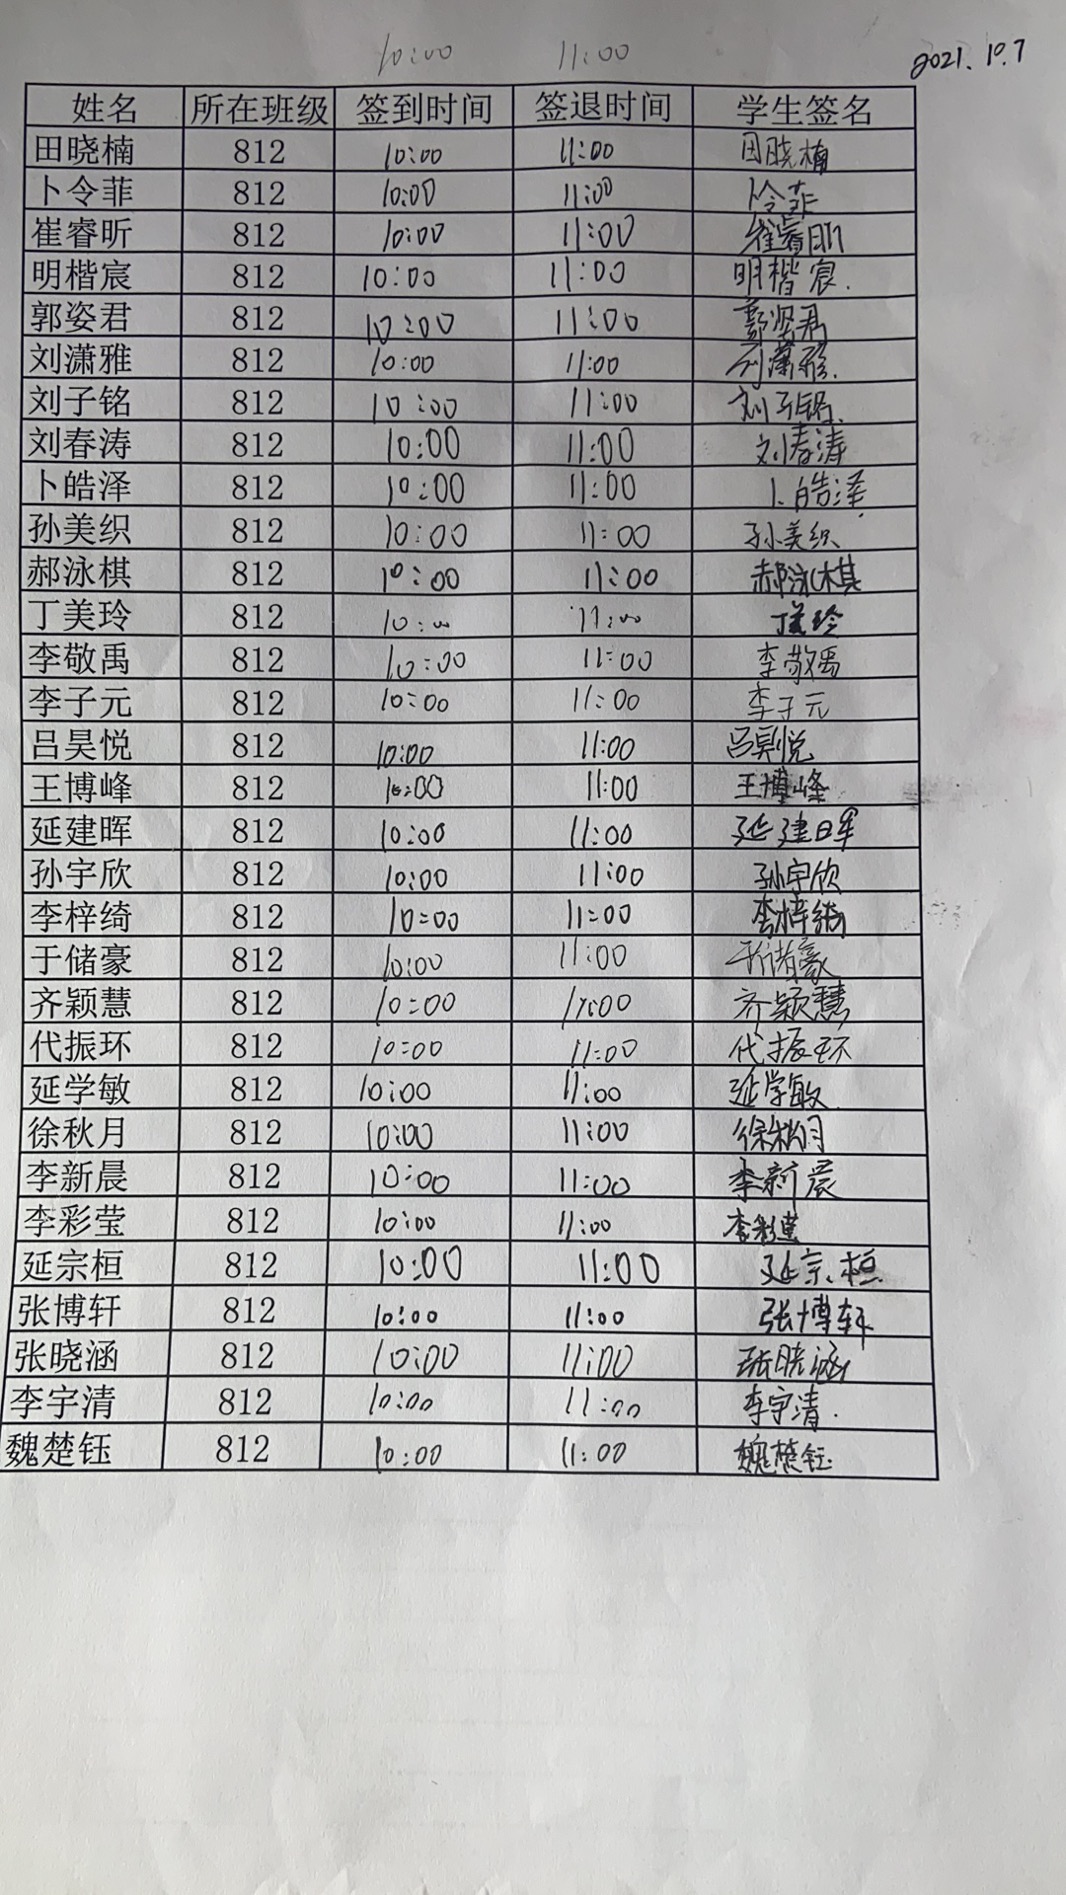 10:00 11:00 2021.10.7
姓名 所在班级 签到时间 签退时间 学生签名
田晓楠 812 10:00 11:00 田晓楠
卜令菲 812 10:00 11:00 卜令菲
崔睿昕 812 10:00 11:00 崔睿昕
明楷宸 812 10:00 11:00 明楷宸.
郭姿君 812 10:00 11:00 郭姿君
刘潇雅 812 10:00 11:00 刘潇雅.
刘子铭 812 10:00 11:00 刘子铭.
刘春涛 812 10:00 11:00 刘春涛
卜皓泽 812 10:00 11:00 卜皓泽
孙美织 812 10:00 11:00 孙美织
郝泳棋 812 10:00 11:00 郝泳棋
丁美玲 812 10:00 11:00 丁美玲
李敬禹 812 10:00 11:00 李敬禹
李子元 812 10:00 11:00 李子元
吕昊悦 812 10:00 11:00 吕昊悦
王博峰 812 10:00 11:00 王博峰
延建晖 812 10:00 11:00 延建晖
孙宇欣 812 10:00 11:00 孙宇欣
李梓绮 812 10:00 11:00 李梓绮
于储豪 812 10:00 11:00 于储豪
齐颖慧 812 10:00 11:00 齐颖慧
代振环 812 10:00 11:00 代振环
延学敏 812 10:00 11:00 延学敏.
徐秋月 812 10:00 11:00 徐秋月
李新晨 812 10:00 11:00 李新晨
李彩莹 812 10:00 11:00 李彩莹
延宗桓 812 10:00 11:00 延宗桓
张博轩 812 10:00 11:00 张博轩
张晓涵 812 10:00 11:00 张晓涵
李宇清 812 10:00 11:00 李宇清.
魏楚钰 812 10:00 11:00 魏楚钰